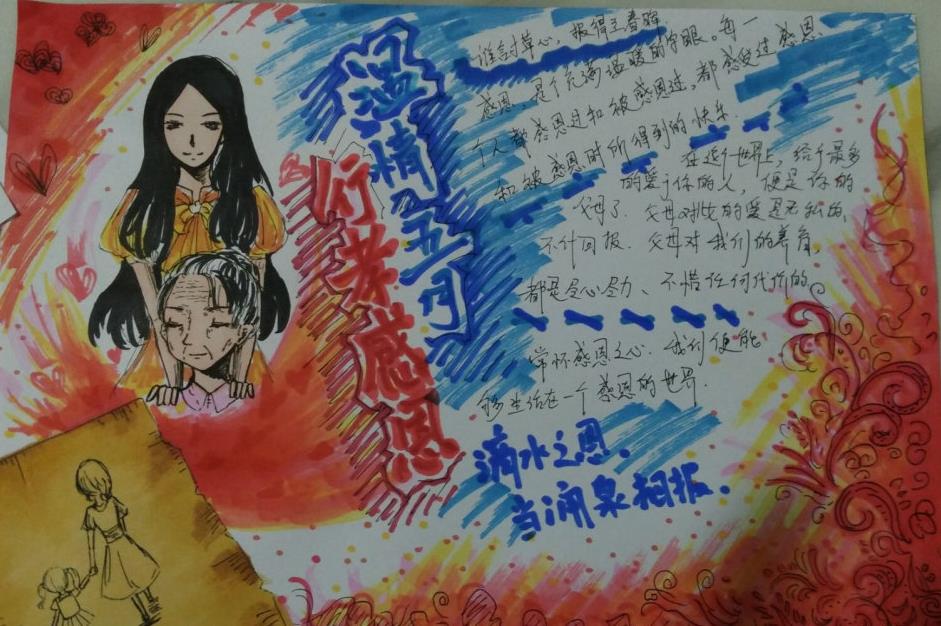 温情五月
行孝感恩
谁言寸草心,报得三春晖
感恩、是个充满温暖的字眼。每一
个人都感恩过和被感恩过,都感受过感恩
和被感恩时所得到的快乐.
在这个世界上,给予最多
的爱予你的人,便是你的
父母了.父母对女的爱是无私的,
不什回报.父母对我们的养育,
都是尽心尽力、不惜任何代价的.
常怀感恩之心.我们便能
够生活在一个感恩的世界.
滴水之恩、
当涌泉相报.